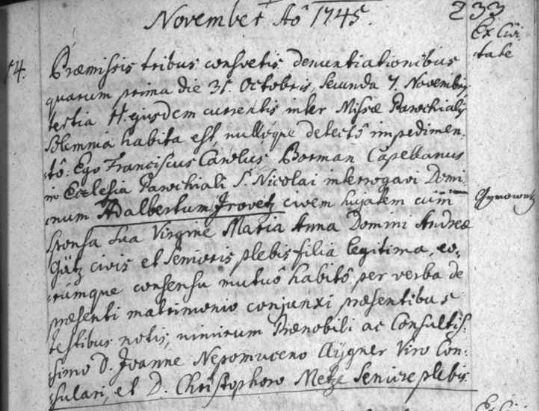 November Aõ 1745.
233
Ex Civi
tate
14.
Præmissis tribus consvetis denuntiationibus
quarum prima die 31. Octobris, secunda 7. Novembr
tertia 14 ejusdem currentis inter Missæ Parochialis
Solemnia habita est nulloque detectô impedimen-
tô. Ego Franciscus Carolus Borman Capellanus
in Ecclesia Parochiali S. Nicolai interrogavi Domi-
num Adalbertum Jrovetz civem hujatem cum
Sponsa sua Virgine Maria Anna Domini Andreæ
Götz civis et Senioris plebis filia legitima, eo-
rúmque consensu mutuô habitô per verba de
præsenti matrimonio conjunxi præsentibus
testibus notis, nimirum Prænobili ac Consultis-
simo D. Joanne Nepomuceno Aÿgner Viro Con-
sulari, et D. Christophoro Metze Seniore plebis.